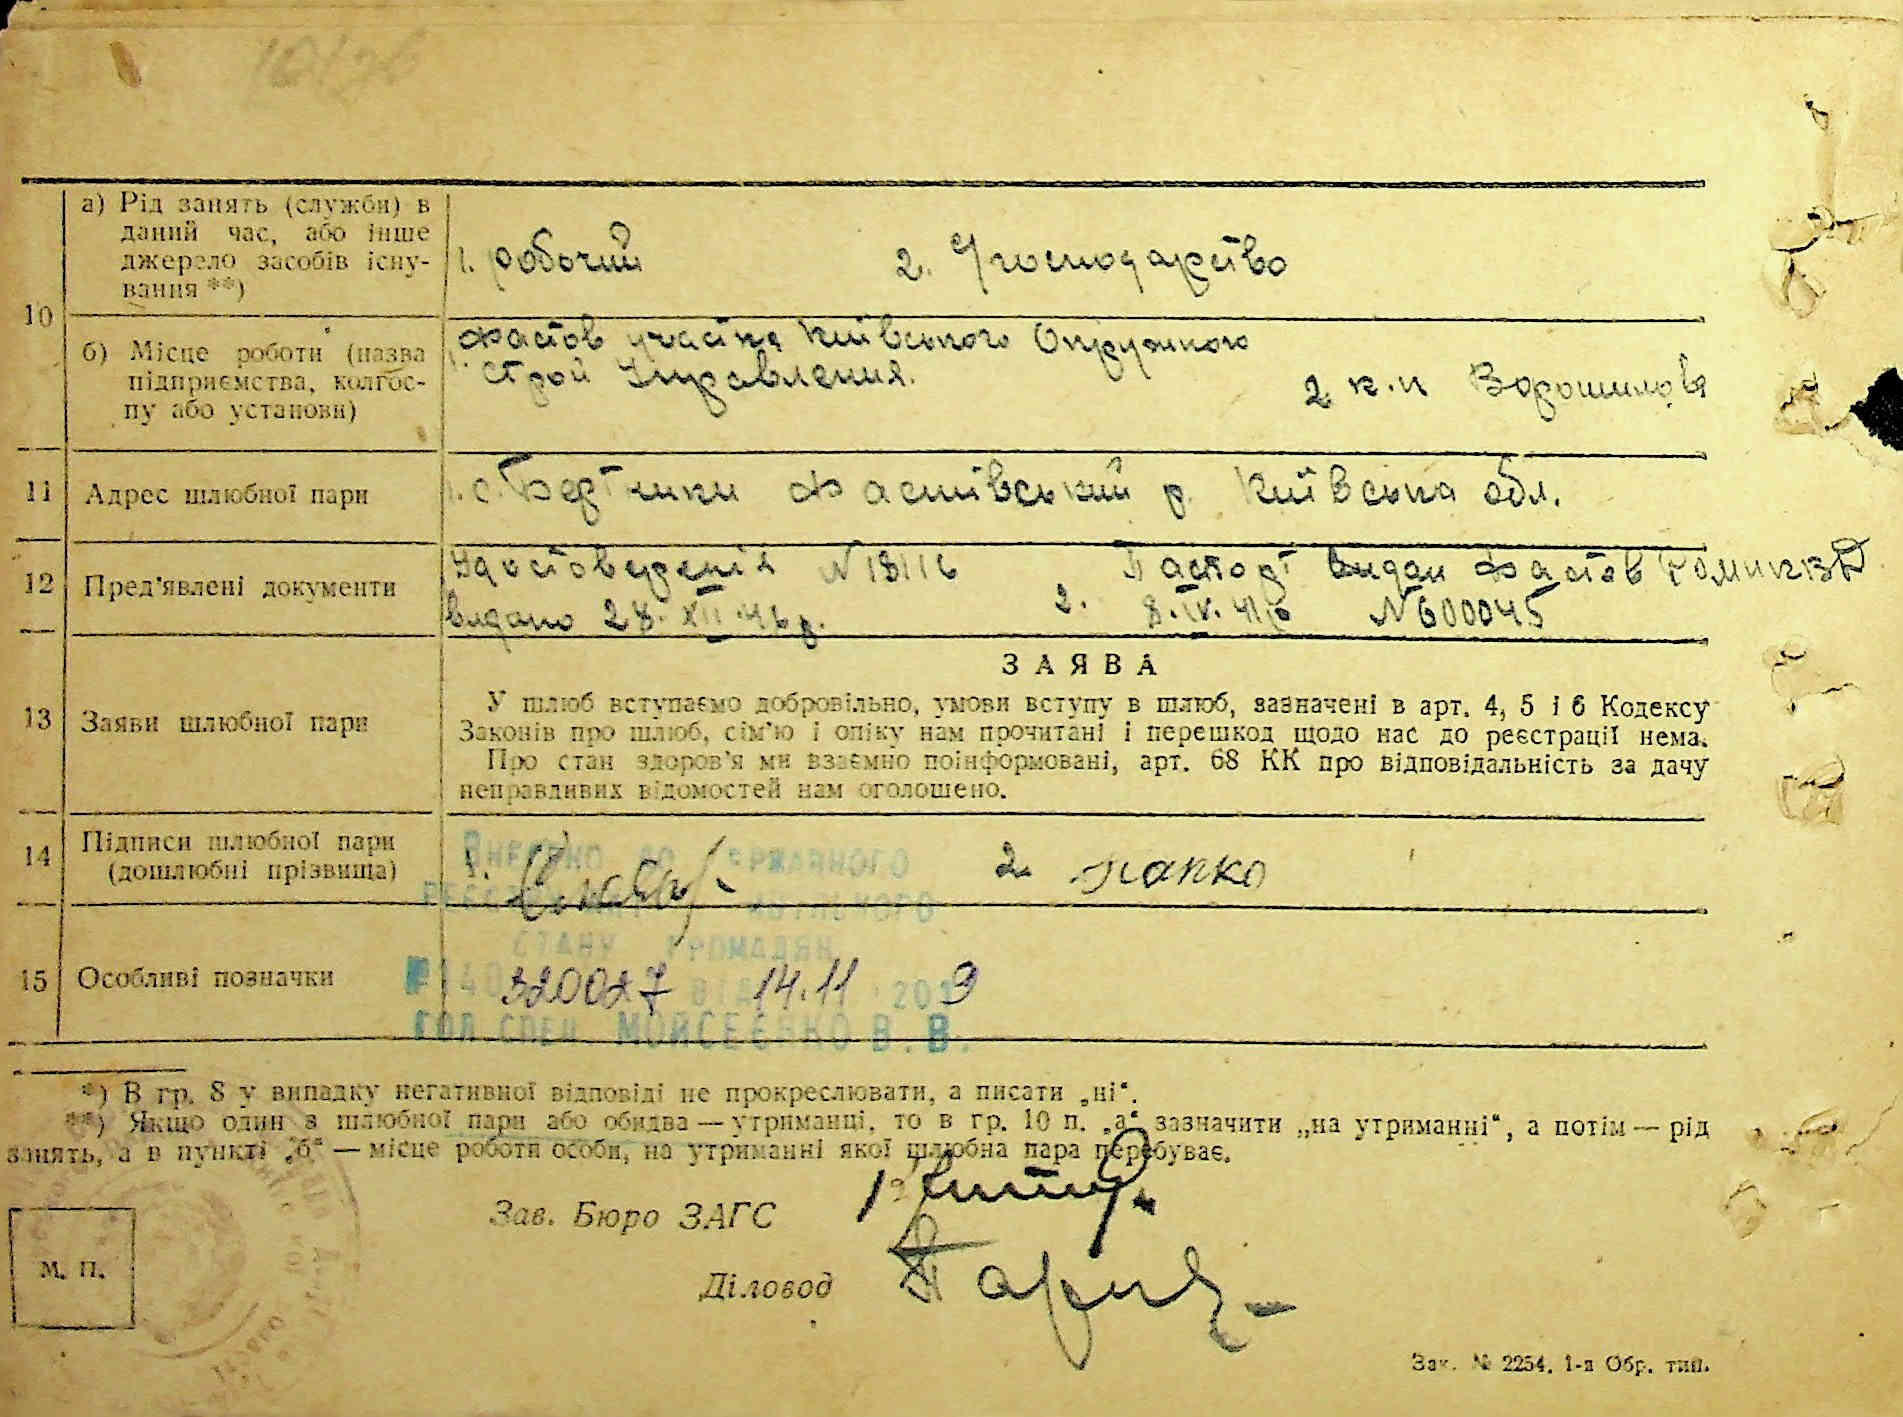 10
а) Рід занять (служби) в
даний час, або інше
джерело засобів існу-
вання **)
1. робочий 2. У господарство
б) Місце роботи (назва
підприємства, колгос-
пу або установи)
1. Фастов участке Київського Окружного
Строй Управления. 2 к.п Ворошилова
11 Адрес шлюбної пари
Фастівський р. Київська обл.
12 Пред'явлені документи
Удостоверенія N 18116
видано 28. XII 46 р.
2. Паспорт видан Фастов
8. IV. N 600045
13 Заяви шлюбної пари
ЗАЯВА
У шлюб вступаємо добровільно, умови вступу в шлюб, зазначені в арт. 4, 5 і 6 Кодексу
Законів про шлюб, сім'ю і опіку нам прочитані і перешкод щодо нас до реєстрації нема.
Про стан здоров'я ми взаємно поінформовані, арт. 68 КК про відповідальність за дачу
неправдивих відомостей нам оголошено.
14 Підписи шлюбної пари
(дошлюбні прізвища)
1. 2. Папко
Внесено до державного
реєстру актів цивільного
стану громадян
15 Особливі позначки
14.11 2019
гол спец Мойсеєнко В.В.
*) В гр. 8 у випадку негативної відповіді не прокреслювати, а писати „ні“.
**) Якщо один з шлюбної пари або обидва — утриманці, то в гр. 10 п. „а“ зазначити „на утриманні“, а потім — рід
занять, а в пункті „б“ — місце роботи особи, на утриманні якої шлюбна пара перебуває.
Зав. Бюро ЗАГС
Діловод
М. П.
Зак. № 2254. 1-а Обр. тип.